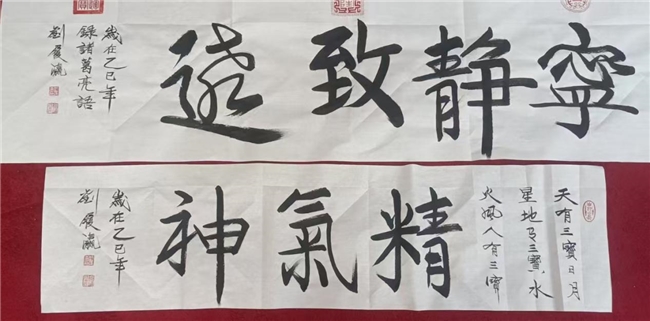 寧静致遠
歲在乙巳年
錄諸葛亮語
劉俊瀛
天有三寶日月
星地有三寶水
火風人有三寶
精氣神
歲在乙巳年
劉俊瀛